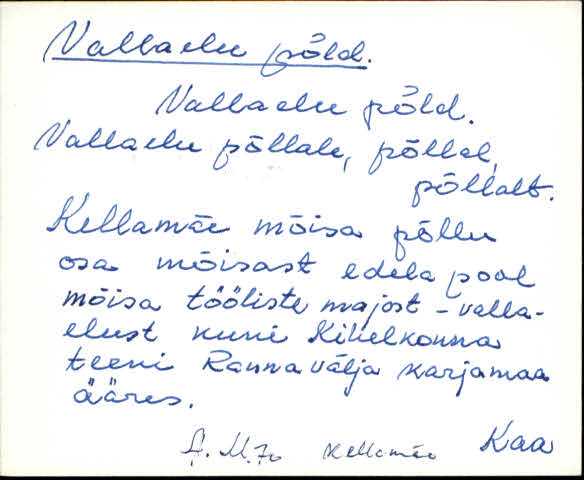 Vallaelu põld.
Vallaelu põld.
Vallaelu põllale, põllal,
põllalt.
Kellamäe mõisa põllu
osa mõisast edela pool
mõisa tööliste majast - valla-
elust kuni Kihelkonna
teeni Rannavälja karjamaa
ääres.
Kellamäe Kaa